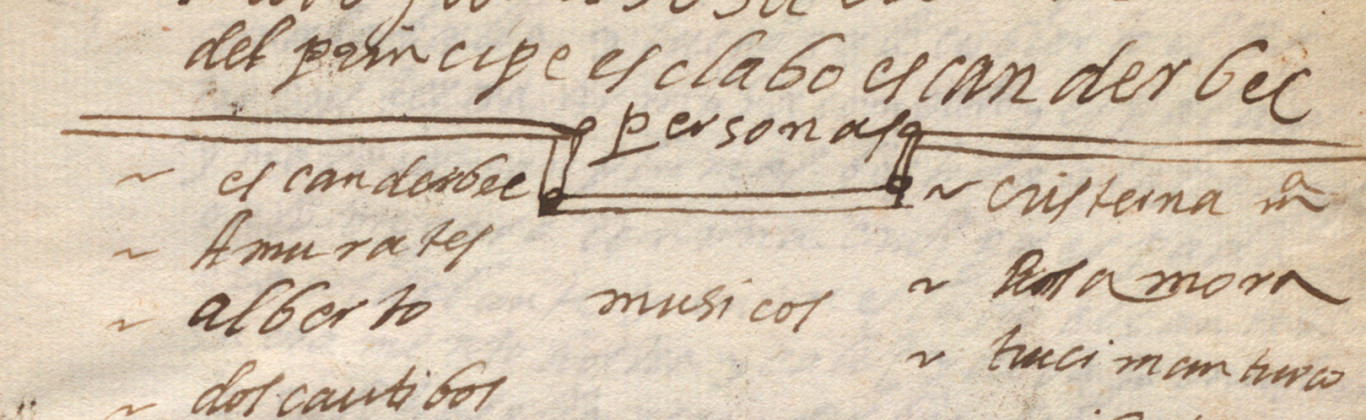 del principe esclabo escanderbec
personas
~ escanderbec
~ Amurates
~ alberto
~ dos cautibos
musicos
~ cristerna
~ Rosa mora
~ truciman turco